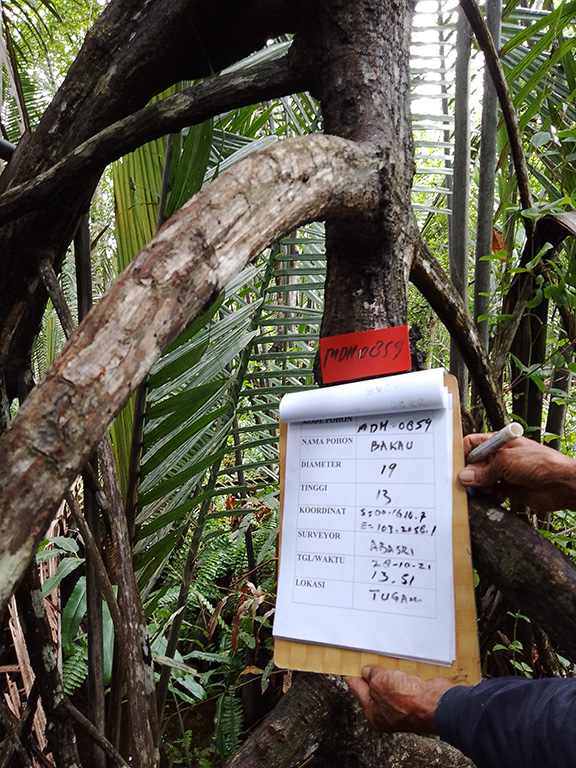 MDH-0859
KODE POHON MDH-0859
NAMA POHON BAKAU
DIAMETER 19
TINGGI 13
KOORDINAT
SURVEYOR ABASRI
TGL/WAKTU
13.51
LOKASI TUGAK